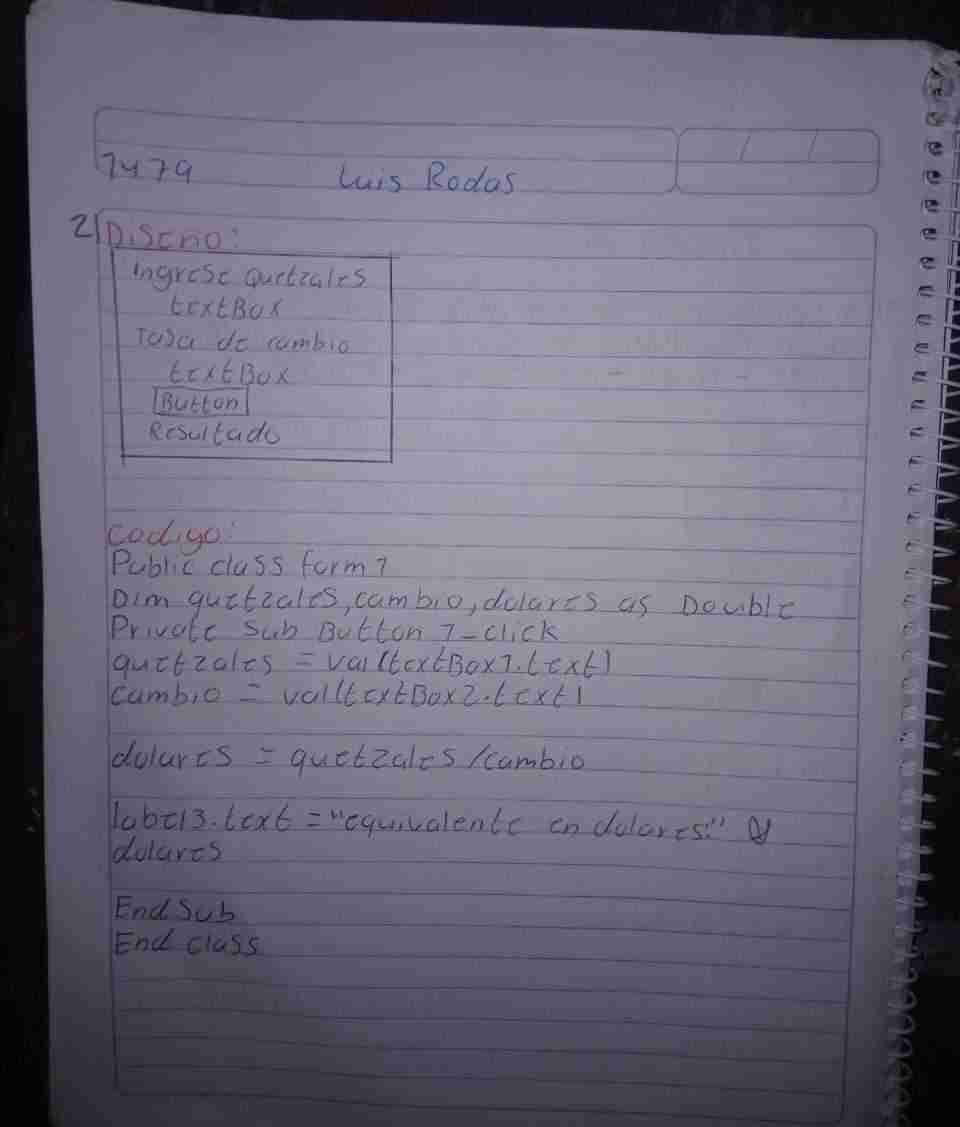 1479 Luis Rodas
2) Diseño:
Ingrese quetzales
textBox
Tasa de cambio
textBox
Button
Resultado
codigo:
Public class form1
Dim quetzales, cambio, dolares as Double
Private Sub Button 1_click
quetzales = val(textBox1.text)
cambio = val(textBox2.text)
dolares = quetzales/cambio
label3.text = "equivalente en dolares:" &
dolares
End Sub
End class